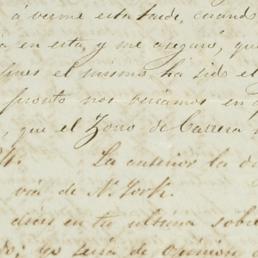 á verme esta tarde, cuando
en esta, y me aseguró, que
fines el mismo ha sido el
pronto nos veríamos en
, que el Zorro de Carrera
La anterior la
via de N. York.
dices en tu última sobre
yo sería de opinion